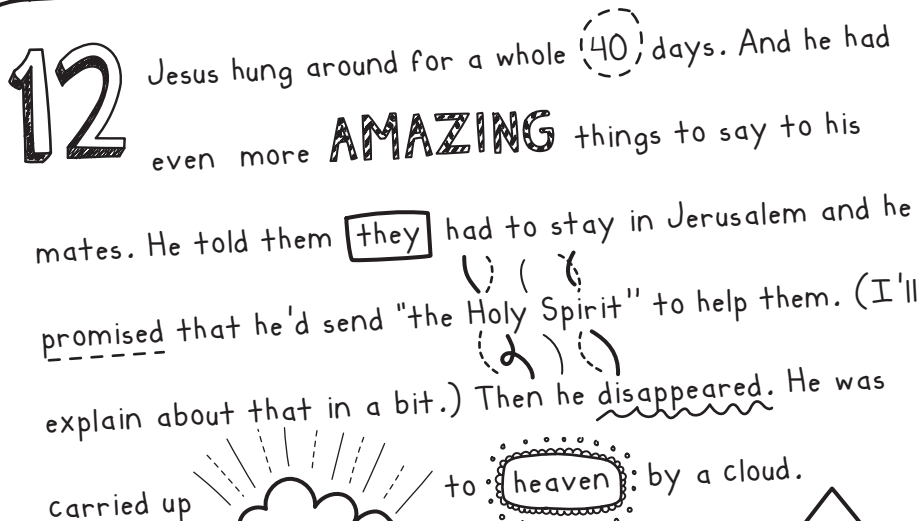 12 Jesus hung around for a whole 40 days. And he had
even more AMAZING things to say to his
mates. He told them they had to stay in Jerusalem and he
promised that he'd send "the Holy Spirit" to help them. (I'll
explain about that in a bit.) Then he disappeared. He was
carried up to heaven by a cloud.